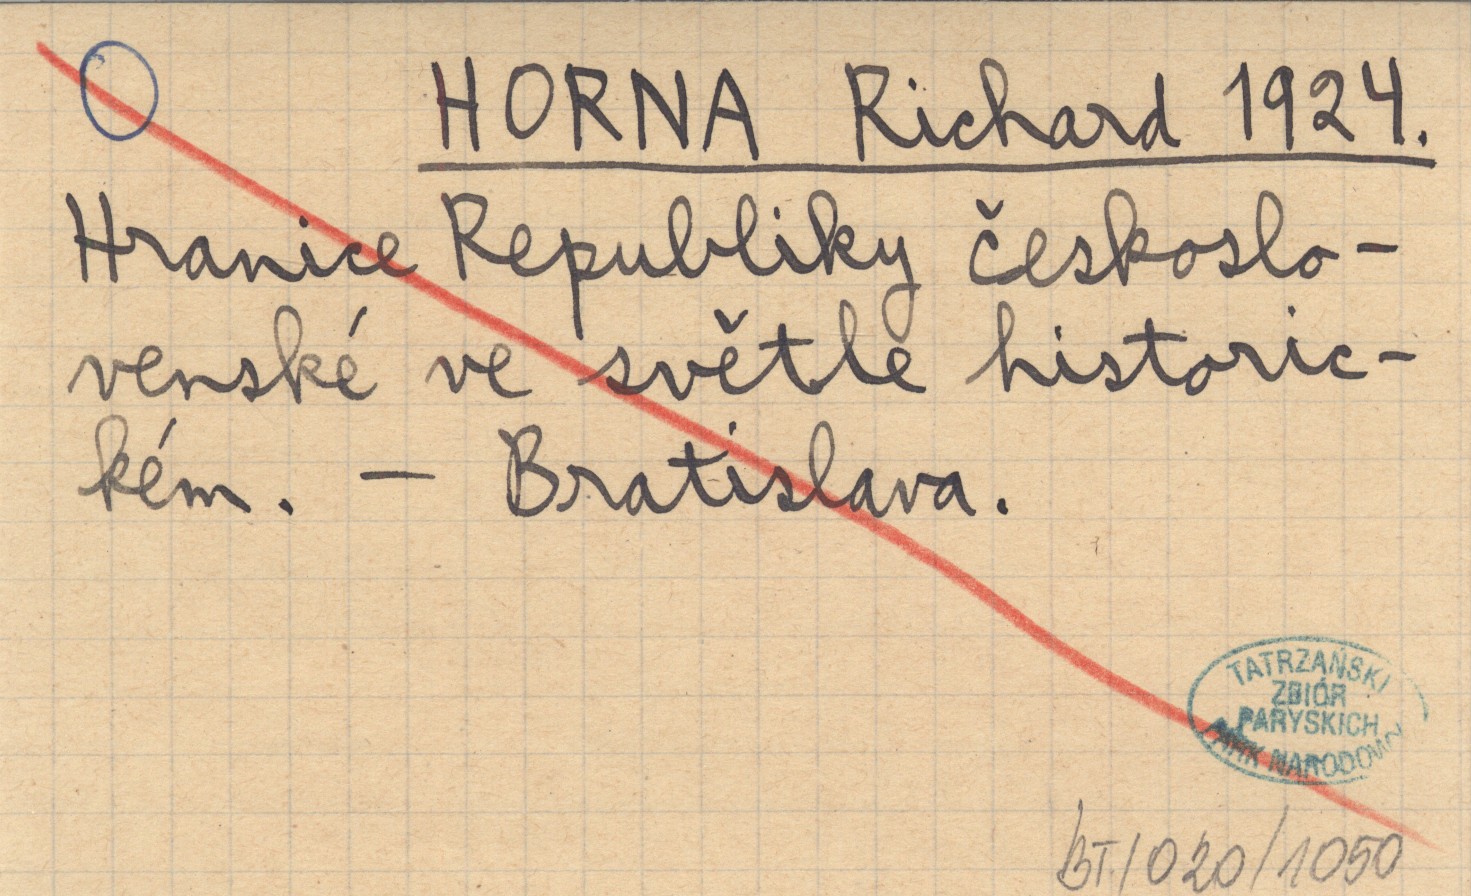 HORNA Richard 1924.
Hranice Republiky českoslo-
venské ve světle historic-
kém. – Bratislava.
TATRZAŃSKI
ZBIÓR
PARYSKICH
PARK NARODOWY
BT/020/1050